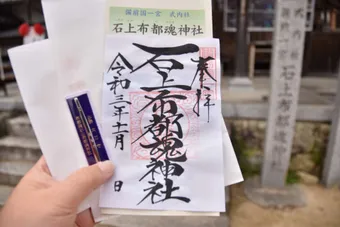 備前国一宮 式内社
石上布都魂神社
奉拝
石上布都魂神社
令和三年十一月 日
石上布都魂神社